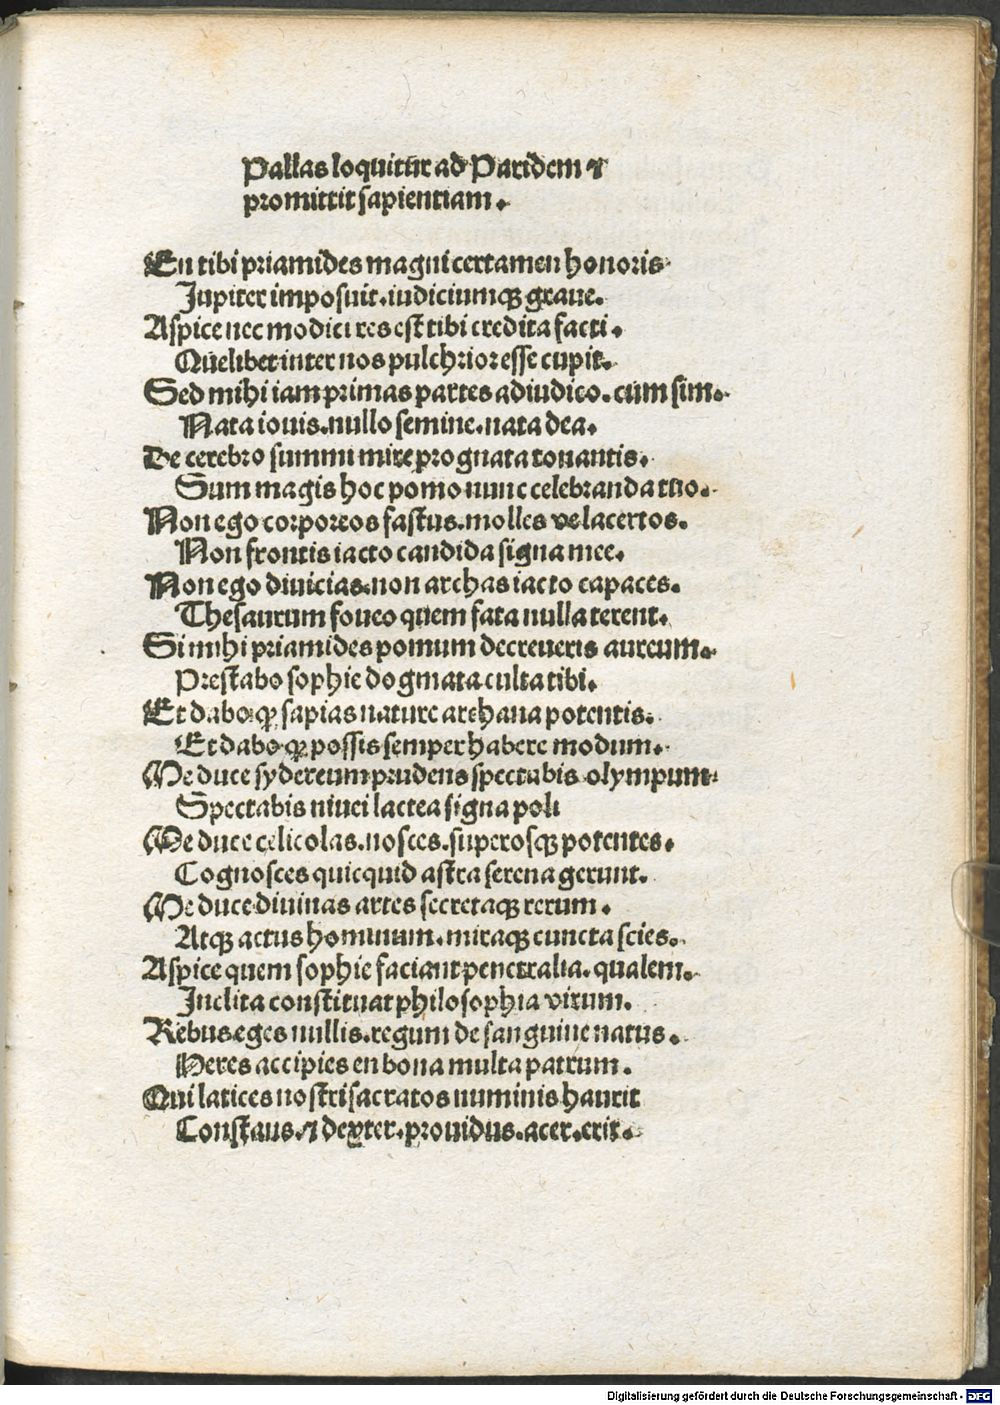 Pallas loquitur ad Paridem ⁊
promittit sapientiam.
En tibi priamides magni certamen honoris.
Jupiter imposuit. iudiciumqꝫ graue.
Aspice nec modici res est tibi credita facti.
Quelibet inter nos pulchrior esse cupit.
Sed mihi iam primas partes adiudico. cum sim.
Nata iouis. nullo semine. nata dea.
De cerebro summi mire prognata tonantis.
Sum magis hoc pomo nunc celebranda tuo.
Non ego corporeos fastus. molles ve lacertos.
Non frontis iacto candida signa mee.
Non ego diuicias. non archas iacto capaces.
Thesaurum foueo quem fata nulla terent.
Si mihi priamides pomum decreueris aureum.
Prestabo sophie dogmata culta tibi.
Et dabo ꝙ sapias nature archana potentis.
Et dabo ꝙ possis semper habere modum.
Me duce sydereum prudens spectabis olympum.
Spectabis niuei lactea signa poli
Me duce celicolas. nosces. superosqꝫ potentes.
Cognosces quicquid astra serena gerunt.
Me duce diuinas artes secretaqꝫ rerum.
Atqꝫ actus hominum. miraqꝫ cuncta scies.
Aspice quem sophie faciant penetralia. qualem.
Inclita constituat philosophia virum.
Rebus eges nullis. regum de sanguine natus.
Heres accipies en bona multa patrum.
Qui latices nostri sacratos numinis haurit
Constans. ⁊ dexter. prouidus. acer. erit.
Digitalisierung gefördert durch die Deutsche Forschungsgemeinschaft - DFG